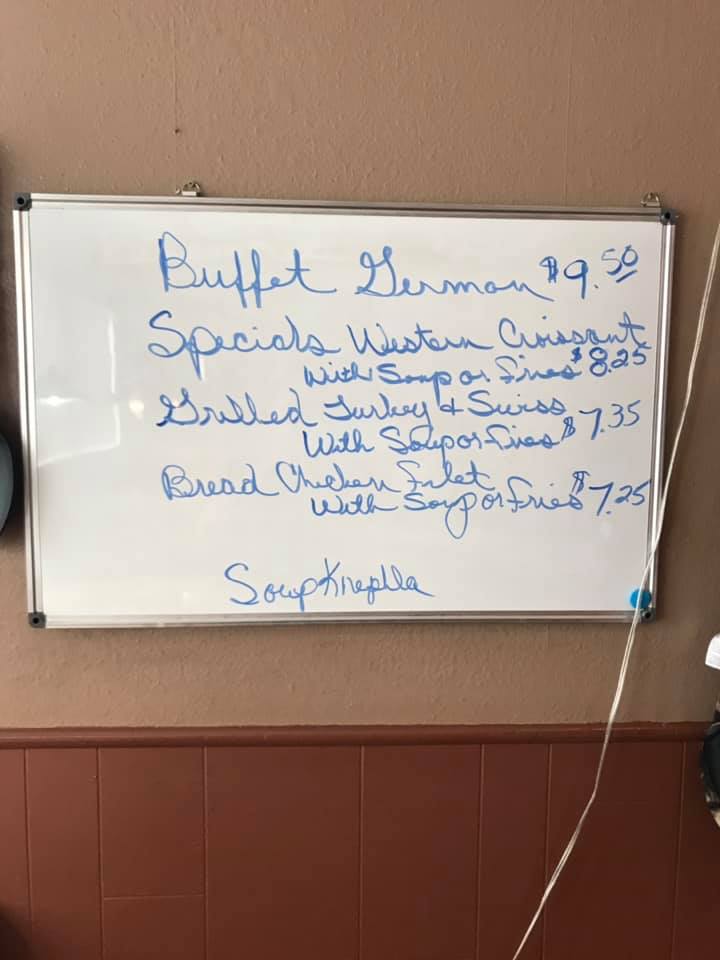 Buffet German $9.50
Specials Western Croissant
With Soup or Fries $8.25
Grilled Turkey & Swiss
With Soup or Fries $7.35
Bread Chicken Filet
With Soup or Fries $7.25
Soup Knephla